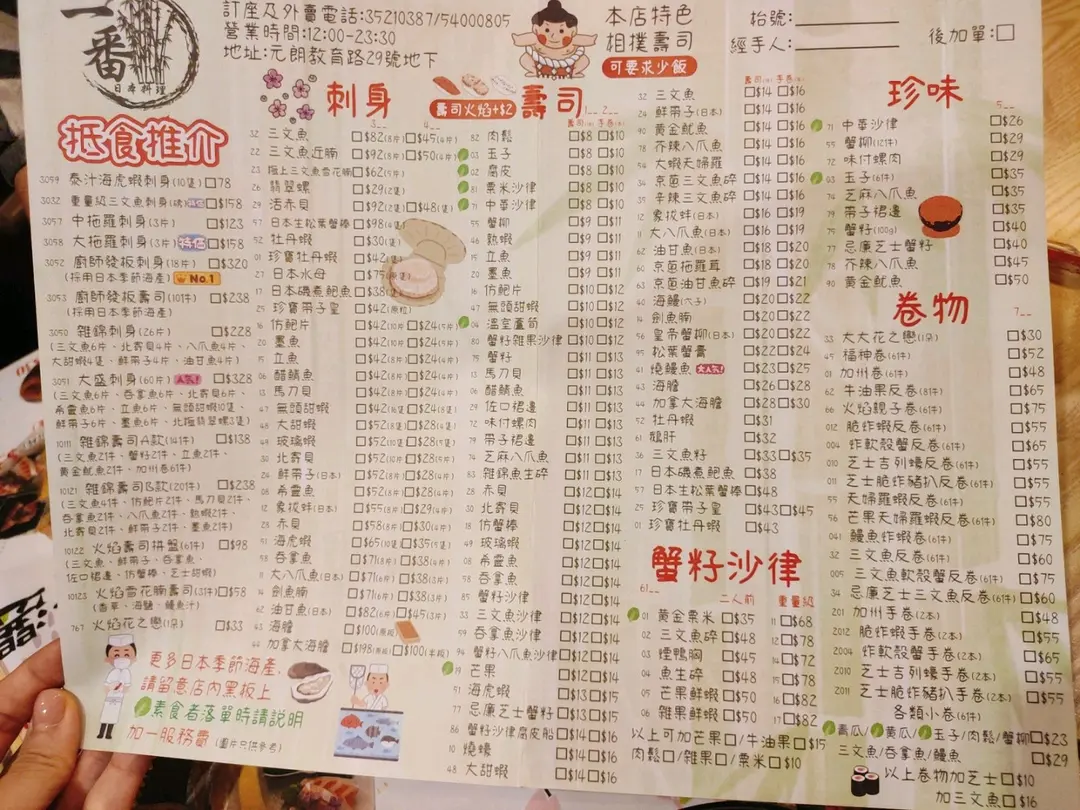 一番
日本料理
訂座及外賣電話:35210387/54000805
營業時間:12:00-23:30
地址:元朗教育路29號地下
本店特色
相撲壽司
可要求少飯
枱號:
經手人:
後加單:□
抵食推介
3059 泰汁海虎蝦刺身(10隻) □78
3032 重量級三文魚刺身 □$158
3057 中拖羅刺身(3片) □$123
3058 大拖羅刺身(3片) 特價 □$158
3052 廚師發板刺身(18片) □$320
(採用日本季節海產) No.1
3053 廚師發板壽司(10件) □$238
(採用日本季節海產)
3050 雜錦刺身(26片) □$228
(三文魚6片、北寄貝4片、八爪魚4片、
大甜蝦4隻、鮮帶子4片、油甘魚4片)
3051 大盛刺身(60片) 人気! □$328
(三文魚6片、吞拿魚6片、北寄貝6片、
希靈魚6片、立魚6片、無頭甜蝦10隻、
鮮帶子6片、墨魚6片、北海翡翠螺3隻)
1011 雜錦壽司A款(14件) □$138
(三文魚2件、蟹籽2件、立魚2件、
黃金魷魚2件、加州卷6件)
10121 雜錦壽司B款(20件) □$238
(三文魚4件、仿鮑片2件、馬刀貝2件、
吞拿魚2件、八爪魚2件、熟蝦2件、
北寄貝2件、鮮帶子2件、墨魚2件)
10122 火焰壽司拼盤(6件) □$98
(三文魚、鮮帶子、吞拿魚、
佐口裙邊、仿蟹棒、芝士甜蝦)
10123 火焰雪花腩壽司(3件) □$58
(香草、海鹽、鰻魚汁)
767 火焰花之戀(1朵) □$33
更多日本季節海產,
請留意店內黑板上
素食者落單時請說明
加一服務費 (圖片只供參考)
刺身
32 三文魚 □$82(8片) □$45(4片)
22 三文魚近腩 □$92(8片) □$50(4片)
23 極上三文魚雪花腩 □$62(5片)
26 翡翠螺 □$29(2隻)
29 活赤貝 □$92(2隻) □$48(1隻)
57 日本生松葉蟹棒 □$98
52 牡丹蝦 □$30(1隻)
01 珍寶牡丹蝦 □$42
27 日本水母 □$75
17 日本磯煮鮑魚 □$38
25 珍寶帶子皇 □$42(原粒)
16 仿鮑片 □$42(10片) □$24(5片)
20 墨魚 □$42(8片) □$24(4片)
15 立魚 □$42(8片) □$24(4片)
06 醋鯖魚 □$42(8片) □$24(4片)
13 馬刀貝 □$42(8片) □$24(4片)
47 無頭甜蝦 □$42(16隻) □$24(8隻)
48 大甜蝦 □$52(8隻) □$28(4隻)
49 玻璃蝦 □$52(10隻) □$28(5隻)
30 北寄貝 □$52(10片) □$28(5片)
24 鮮帶子(日本) □$52(8片) □$28(4片)
08 希靈魚 □$52(8片) □$28(4片)
12 象拔蚌(日本) □$55(8片) □$29(4片)
28 赤貝 □$58(8片) □$30(4片)
51 海虎蝦 □$65(10隻) □$35(5隻)
58 吞拿魚 □$71(8片) □$38(4片)
11 大八爪魚(日本) □$71(6片) □$38(3片)
14 劍魚腩 □$71(6片) □$38(3片)
62 油甘魚(日本) □$82(6片) □$45(3片)
43 海膽 □$100
44 加拿大海膽 □$198(原板) □$100(半板)
壽司火焰+$2
壽司
82 肉鬆 □$8 □$10
03 玉子 □$8 □$10
02 腐皮 □$8 □$10
81 粟米沙律 □$8 □$10
71 中華沙律 □$8 □$10
55 蟹柳 □$9 □$11
46 熟蝦 □$9 □$11
15 立魚 □$9 □$11
20 墨魚 □$9 □$11
16 仿鮑片 □$10 □$12
47 無頭甜蝦 □$10 □$12
04 溫室蘆筍 □$10 □$12
80 蟹籽雜果沙律 □$10 □$12
75 蟹籽 □$11 □$13
13 馬刀貝 □$11 □$13
06 醋鯖魚 □$11 □$13
29 佐口裙邊 □$11 □$13
72 味付螺肉 □$11 □$13
79 帶子裙邊 □$11 □$13
74 芝麻八爪魚 □$11 □$13
83 雜錦魚生碎 □$11 □$13
28 赤貝 □$12 □$14
30 北寄貝 □$12 □$14
18 仿蟹棒 □$12 □$14
49 玻璃蝦 □$12 □$14
08 希靈魚 □$12 □$14
58 吞拿魚 □$12 □$14
85 蟹籽沙律 □$12 □$14
33 三文魚沙律 □$12 □$14
59 吞拿魚沙律 □$12 □$14
94 蟹籽八爪魚沙律 □$12 □$14
19 芒果 □$12 □$14
51 海虎蝦 □$13 □$15
77 忌廉芝士蟹籽 □$13 □$15
86 蟹籽沙律腐皮船 □$14 □$16
10 燒蠔 □$14 □$16
48 大甜蝦 □$14 □$16
32 三文魚 □$14 □$16
24 鮮帶子(日本) □$14 □$16
90 黃金魷魚 □$14 □$16
78 芥辣八爪魚 □$14 □$16
54 大蝦天婦羅 □$14 □$16
34 京蔥三文魚碎 □$14 □$16
31 辛辣三文魚碎 □$14 □$16
12 象拔蚌(日本) □$16 □$19
11 大八爪魚(日本) □$17 □$19
62 油甘魚(日本) □$18 □$20
60 京蔥拖羅茸 □$18 □$20
63 京蔥油甘魚碎 □$19 □$21
40 海鰻(穴子) □$20 □$22
14 劍魚腩 □$20 □$22
56 皇帝蟹柳(日本) □$20 □$22
95 松葉蟹膏 □$22 □$24
41 燒鰻魚 大人気! □$23 □$25
43 海膽 □$26 □$28
44 加拿大海膽 □$28 □$30
52 牡丹蝦 □$31
61 鵝肝 □$32
36 三文魚籽 □$33 □$35
17 日本磯煮鮑魚 □$38
57 日本生松葉蟹棒 □$48
25 珍寶帶子皇 □$43 □$45
01 珍寶牡丹蝦 □$43
蟹籽沙律
61__ 二人前 重量級
01 黃金粟米 □$35 11 □$68
02 三文魚碎 □$48 12 □$78
03 煙鴨胸 □$45 14 □$72
04 魚生碎 □$48 15 □$78
05 芒果鮮蝦 □$50 16 □$82
06 雜果鮮蝦 □$50 17 □$82
以上可加芒果□/牛油果□$15
肉鬆□/雜果□/粟米□$10
珍味
5__
71 中華沙律 □$26
55 蟹柳(12件) □$29
72 味付螺肉 □$29
03 玉子(6件) □$35
74 芝麻八爪魚 □$35
79 帶子裙邊 □$35
75 蟹籽(100g) □$40
77 忌廉芝士蟹籽 □$40
78 芥辣八爪魚 □$45
90 黃金魷魚 □$50
卷物
7__
33 太太花之戀(1朵) □$30
45 福神卷(6件) □$52
01 加州卷(6件) □$48
62 牛油果反卷(8件) □$65
66 火焰親子卷(6件) □$75
012 脆炸蝦反卷(6件) □$55
004 炸軟殼蟹反卷(6件) □$65
010 芝士吉列蠔反卷(6件) □$55
011 芝士脆炸豬扒反卷(6件) □$55
55 天婦羅蝦反卷(6件) □$55
56 芒果天婦羅蝦反卷(6件) □$80
041 鰻魚炸蝦卷(6件) □$75
32 三文魚反卷(6件) □$60
005 三文魚軟殼蟹反卷(6件) □$75
34 忌廉芝士三文魚反卷(6件) □$60
201 加州手卷(2本) □$48
2012 脆炸蝦手卷(2本) □$55
2004 炸軟殼蟹手卷(2本) □$65
2010 芝士吉列蠔手卷(2本) □$55
2011 芝士脆炸豬扒手卷(2本) □$55
各類小卷(6件)
青瓜/黃瓜/玉子/肉鬆/蟹柳□$23
三文魚/吞拿魚/鰻魚 □$29
以上卷物加芝士□$10
加三文魚□$16